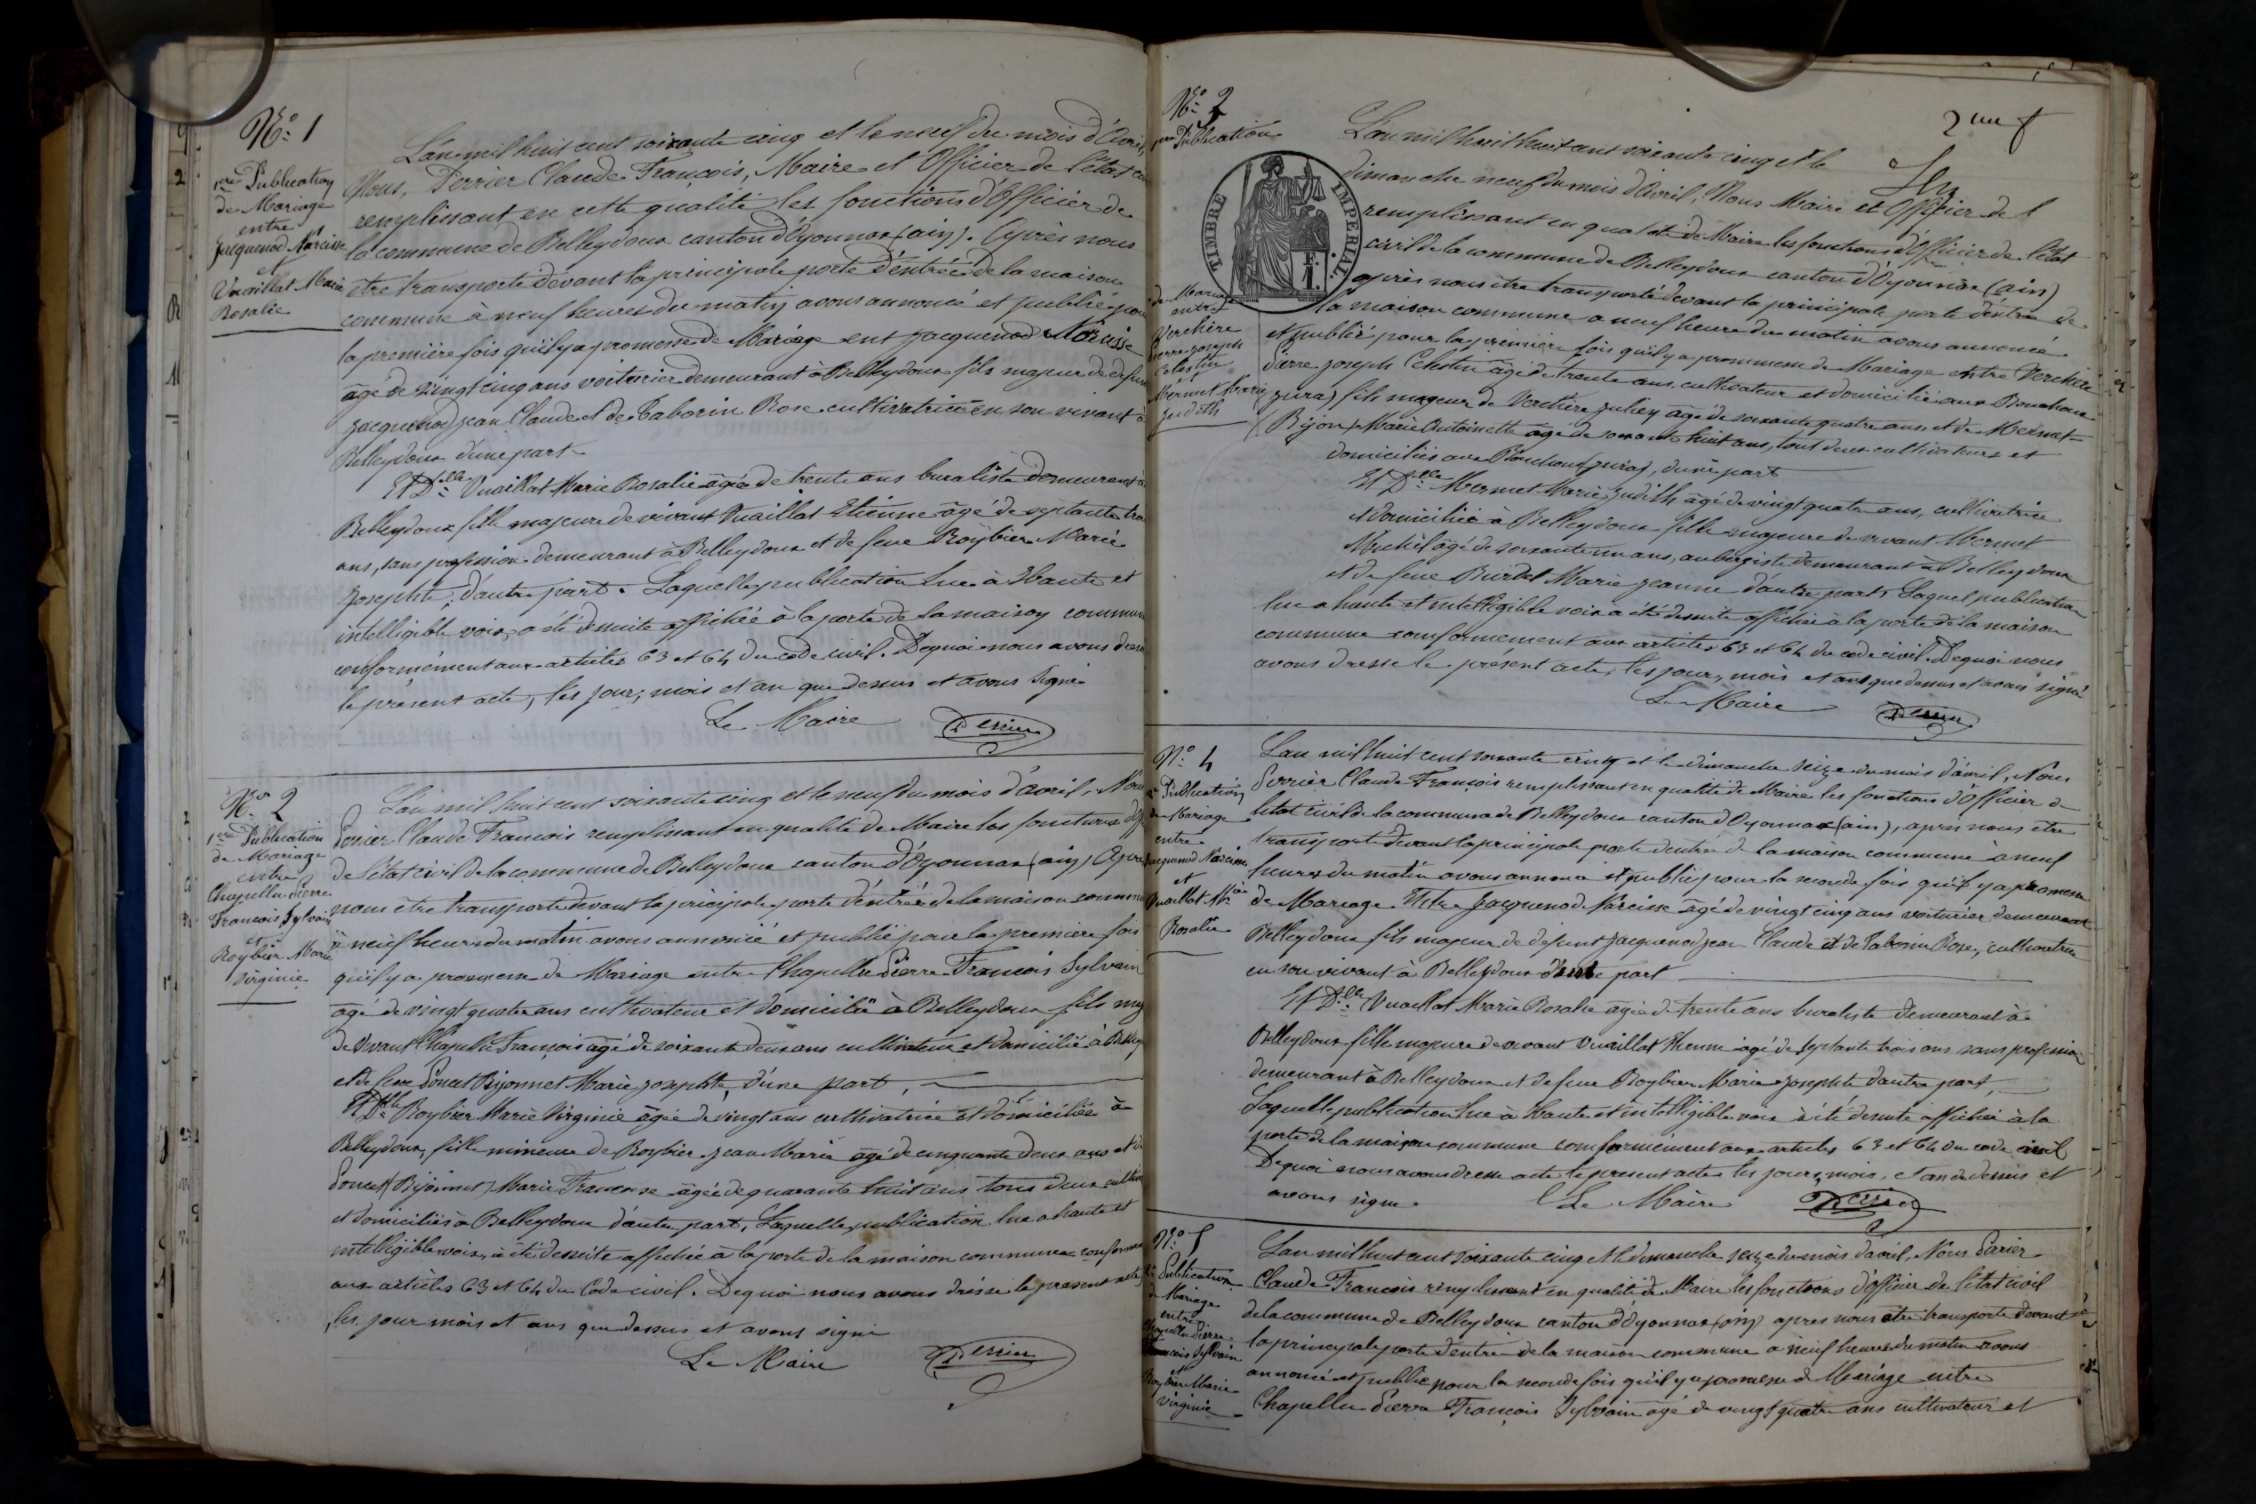 N.º 1
1ère Publication
de Mariage
entre
Jacquenod Narcisse
et
Vuaillat Marie
Rosalie
L'an mil huit cent soixante cinq et le neuf du mois d'Avril,
Nous, Perrier Claude François, Maire et Officier de l'état
remplissant en cette qualité les fonctions d'Officier de
la commune de Belleydoux canton d'Oyonnax (ain). Après nous
être transporté devant la principale porte d'entrée de la maison
commune à neuf heures du matin avons annoncé et publié pour
la première fois qu'il y a promesse de Mariage ent Jacquenod Narcisse
âgé de vingt cinq ans voiturier demeurant à Belleydoux fils majeur de defunt
Jacquenod Jean Claude et de Taborin Rose cultivatrice en son vivant à
Belleydoux d'une part
Et Delle Vuaillat Marie Rosalie âgée de trente ans buraliste demeurant à
Belleydoux fille majeure de vivant Vuaillat Etienne âgé de septante trois
ans, sans profession demeurant à Belleydoux et de feue Roybier Marie
Josephte, d'autre part. Laquelle publication lue à Haute et
intelligible voix, a été de suite affichée à la porte de la maison commune
conformément aux articles 63 et 64 du code civil. De quoi nous avons dressé
le présent acte, les jour, mois et an que dessus et avons signé
Le Maire Perrier
N.º 2
1ère Publication
de Mariage
entre
Chapellu Pierre
François Sylvain
et
Roybier Marie
Virginie
L'an mil huit cent soixante cinq et le neuf du mois d'avril, Nous
Perrier Claude François remplissant en qualité de Maire les fonctions d'off
de l'état civil de la commune de Belleydoux canton d'Oyonnax (ain) Après
nous être transporté devant la pricipale porte d'entrée de la maison commune
à neuf heures du matin avons annoncé et publié pour la première fois
qu'il y a promesse de Mariage entre Chapellu Pierre François Sylvain
âgé de vingt quatre ans cultivateur et domicilié à Belleydoux fils maj
de vivant Chapellu François âgé de soixante deux ans cultivateur et domicilié à Belley
et de feue Poncet Bijonnet Marie Josephte, d'une part,
Et Delle Roybier Marie Virginie âgée de vingt ans cultivatrice et domiciliée à
Belleydoux, fille mineure de Roybier Jean Marie âgé de cinquante deux ans et de
Poncet (Bijonnet) Marie Françoise âgée de quarante huit ans tous deux cultiva
et domiciliés à Belleydoux d'autre part, Laquelle publication lue a haute et
intelligible voix, a été de suite affichée à la porte de la maison commune conforme
aux articles 63 et 64 du Code civil. De quoi nous avons dréssé le present acte
les jour mois et ans que dessus et avons signé
Le Maire Perrier
2me f
N.º 3
1ère Publication
de Mariage
entre
Verchère
Pierre Joseph
Celestin
Mermet Marie
Judith
TIMBRE IMPERIAL
1 F.
L'an mil huit huit cent soixante cinq et le
dimanche neuf du mois d'Avril, Nous Maire et Officier de l
remplissant en qualité de Maire les fonctions d'Officier de l'état
civil de la commune de Belleydoux canton d'Oyonnax (ain)
après nous être transporté devant la principale porte d'entrée de
la maison commune a neuf heure du matin avons annoncé
et publié pour la première fois qu'il y a prommesse de Mariage entre Verchère
Pierre Joseph Celestin âgé de trente ans cultivateur et domicilié aux Bouchoux
Jura) fils majeur de Verchère Julien âgé de soixante quatre ans et de Mermet
(Bijon) Marie Antoinette âgé de soixante huit ans, tout deux cultivateurs et
domiciliés aux Bouchoux (Jura), d'une part
Et Delle Mermet Marie Judith âgé de vingt quatre ans, cultivatrice
et domiciliée à Belleydoux fille majeure de vivant Mermet
Michel âgé de soixante un ans, aubergiste demeurant à Belleydoux
et de feue Burdet Marie Jeanne d'autre part, Laquel publication
lue a haute et intelligible voix a été de suite affichée à la porte de la maison
commune conformement aux articles 63 et 64 du code civil. De quoi nous
avons dressé le présent acte, les jour, mois et ans que dessus et avons signé
Le Maire Perrier
N.º 4
2e Publication
de Mariage
entre
Jacquenod Narcisse
et
Vuaillat Mie
Rosalie
L'an mil huit cent soixante cinq et le dimanche seize du mois d'avril, Nous
Perrier Claude François remplissant en qualité de Maire les fonctions d'Officier de
l'état civil de la commune de Belleydoux canton d'Oyonnax (ain), après nous être
transporté devant la principale porte d'entrée de la maison commune à neuf
heures du matin avons annoncé et publié pour la seconde fois qu'il y a promesse
de Mariage Entre Jacquenod Narcisse âgé de vingt cinq ans voiturier demeurant
Belleydoux fils majeur de defunt Jacquenod Jean Claude et de Taborin Rose, cultivatrice
en son vivant à Belleydoux d'une part
Et Delle Vuaillat Marie Rosalie âgée de trente ans buraliste demeurant à
Belleydoux fille majeure de vivant Vuaillat Etienne âgé de septante trois ans sans profession
demeurant à Belleydoux et de feue Roybier Marie Josephte d'autre part,
Laquelle publication lue à haute et intelligible voix à été de suite affichée à la
porte de la maison commune conformément aux articles 63 et 64 du code civil
De quoi nous avons dressé acte le present acte les jour, mois, et an de dessus et
avons signé. Le Maire Perrier
N.º 5
2e Publication
de Mariage
entre
Chapellu Pierre
François Sylvain
et
Roybier Marie
Virginie
L'an mil huit cent soixante cinq et le dimanche seize du mois d'avril, Nous Perier
Claude François remplissant en qualité de Maire les fonctions d'officier de l'état civil
de la commune de Belleydoux canton d'Oyonnax (ain) après nous être transporté devant
la principale porte d'entrée de la maison commune à neuf heures du matin avons
annoncé et publié pour la seconde fois qu'il y a promesse de Mariage entre
Chapellu Pierre François Sylvain âgé de vingt quatre ans cultivateur et